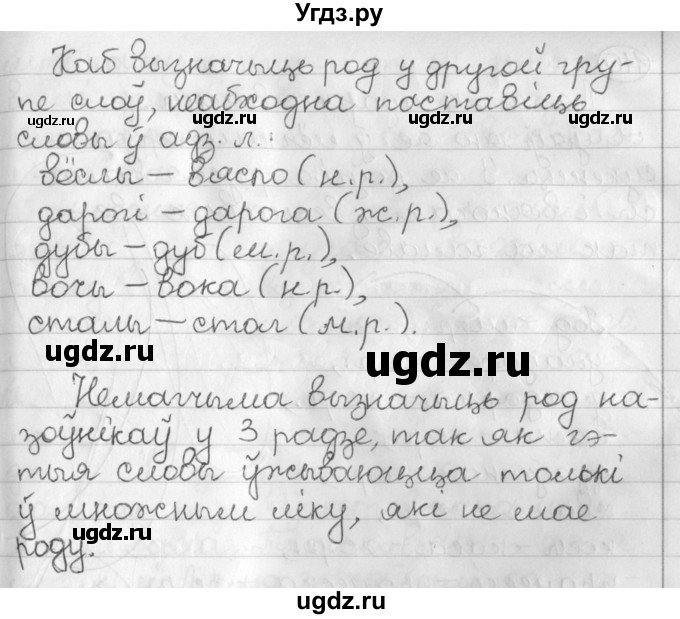 Угдз.ру
Каб вызначыць род у другой гру-
пе слоў, неабходна паставіць
ugdz.ru ugdz.ru ugdz.ru
словы ў адз. л.:
вёслы – вясло (н.р.),
дарогі – дарога (ж.р.),
дубы – дуб (м.р.),
вочы – вока (н.р.),
сталы – стол (м.р.).
ugdz.ru ugdz.ru
Немагчыма вызначыць род на-
зоўнікаў у 3 радзе, так як гэ-
ugdz.ru ugdz.ru ugdz.ru
тыя словы ўжываюцца толькі
ў множным ліку, які не мае
ugdz.ru ugdz.ru
роду.
ugdz.ru